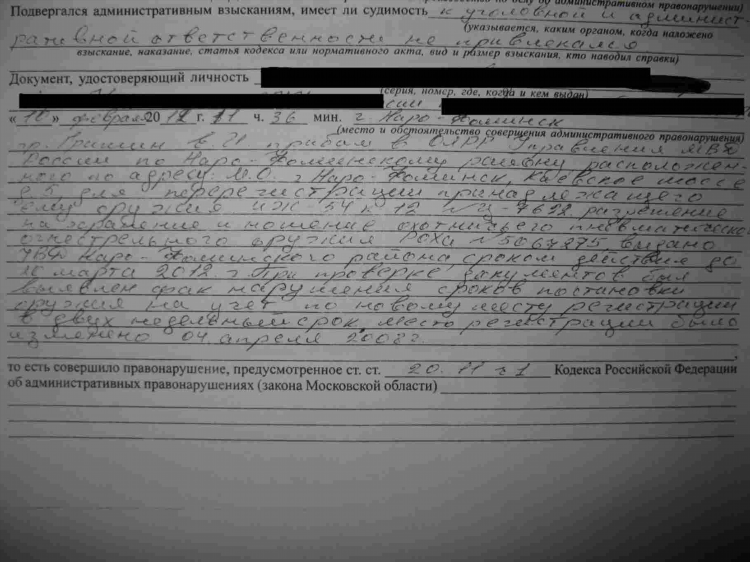 Подвергался административным взысканиям, имеет ли судимость к уголовной и админист
(указывается, каким органом, когда наложено
ративной ответственности не привлекался
взыскание, наказание, статья кодекса или нормативного акта, вид и размер взыскания, кто наводил справки)
Документ, удостоверяющий личность
(серия, номер, где, когда и кем выдан)
сии
« 10 » февраля 2012 г. 11 ч. 36 мин. г. Наро-Фоминск
(место и обстоятельство совершения административного правонарушения)
гр. Гришин В И прибыл в ОЛРР Управления МВД
России по Наро-Фоминскому району расположен-
ного по адресу: М.О. г Наро-Фоминск, Киевское шоссе
д 5 для перерегистрации принадлежащего
ему оружия ИЖ-54 к 12 разрешение
на хранение и ношение охотничьего пневматическо
огнестрельного оружия РОХа № 5067875 выдано
УВД Наро-Фоминского района сроком действия до
16 марта 2012 г. При проверке документов был
выявлен фак нарушения сроков постановки
оружия на учет по новому месту регистрации
в двух недельный срок, место регистрации было
изменено 04 апреля 2008 г.
то есть совершило правонарушение, предусмотренное ст. ст. 20.11 ч 1 Кодекса Российской Федерации
об административных правонарушениях (закона Московской области)